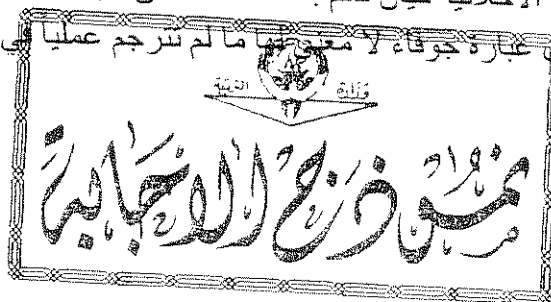 عبارة جوفاء لا معنى لها ما لم تترجم عمليا في
وزارة التربية
نموذج الاجابة